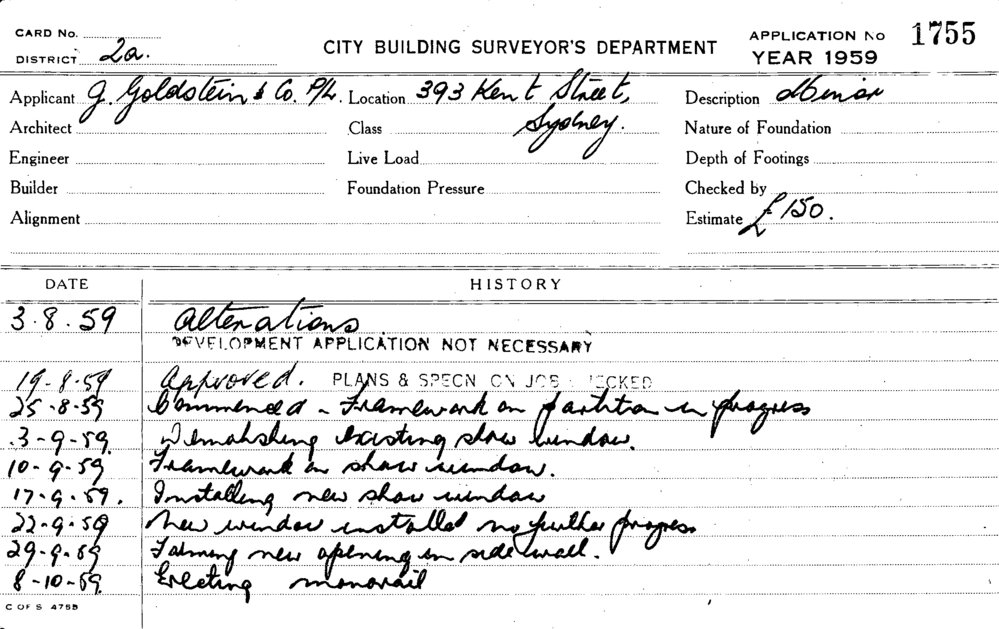 CARD No.
DISTRICT 2a.
CITY BUILDING SURVEYOR'S DEPARTMENT
APPLICATION No 1755
YEAR 1959
Applicant J. Goldstein & Co. P/L. Location 393 Kent Street, Description Minor
Architect Class Sydney. Nature of Foundation
Engineer Live Load Depth of Footings
Builder Foundation Pressure Checked by
Alignment Estimate £150.
DATE HISTORY
3.8.59 Alterations
DEVELOPMENT APPLICATION NOT NECESSARY
19-8-59 Approved. PLANS & SPECN ON JOB CHECKED
25-8-59 Commenced - Framework on partition in progress
3-9-59. Demolishing existing show window.
10-9-59 Framework on show window.
17-9-59. Installing new show window
22-9-59 New window installed no further progress
29-9-59 Forming new opening in side wall.
8-10-59. Erecting monorail
C OF S 475B